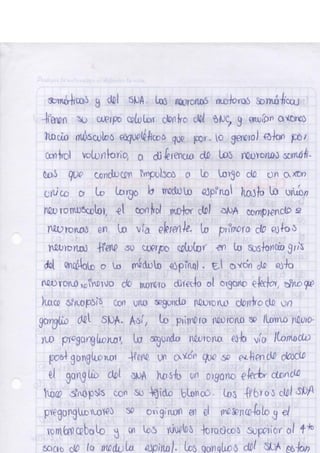 somáticas y del SNA. Las neuronas motoras somáticas
tienen su cuerpo celular dentro del SNC, y envían axones
hacia músculos esqueléticos que por lo general están por
control voluntario, a diferencia de las neuronas somáti-
cas que conducen impulsos a lo largo de un axón
único a lo largo la médula espinal hasta la unión
neuromuscular, el control motor del SNA comprende
neuronas en la vía eferente. La primera de estas
neuronas tiene su cuerpo celular en la sustancia gris
del encéfalo o la médula espinal. El axón de esta
neurona inerva de manera directa al órgano efector, sino que
hace sinapsis con una segunda neurona dentro de un
ganglio del SNA. Así, la primera neurona se llama neuro-
na preganglionar, la segunda neurona esta vía llamada
postganglionar tiene un axón que se extiende desde
el ganglio del SNA hasta un órgano efector donde
hace sinapsis con su tejido blanco. Las fibras del SNA
preganglionares se originan en el mesencéfalo y el
rombencéfalo y en los niveles torácicos superior al 4to
sacro de la médula espinal. Los ganglios del SNA están